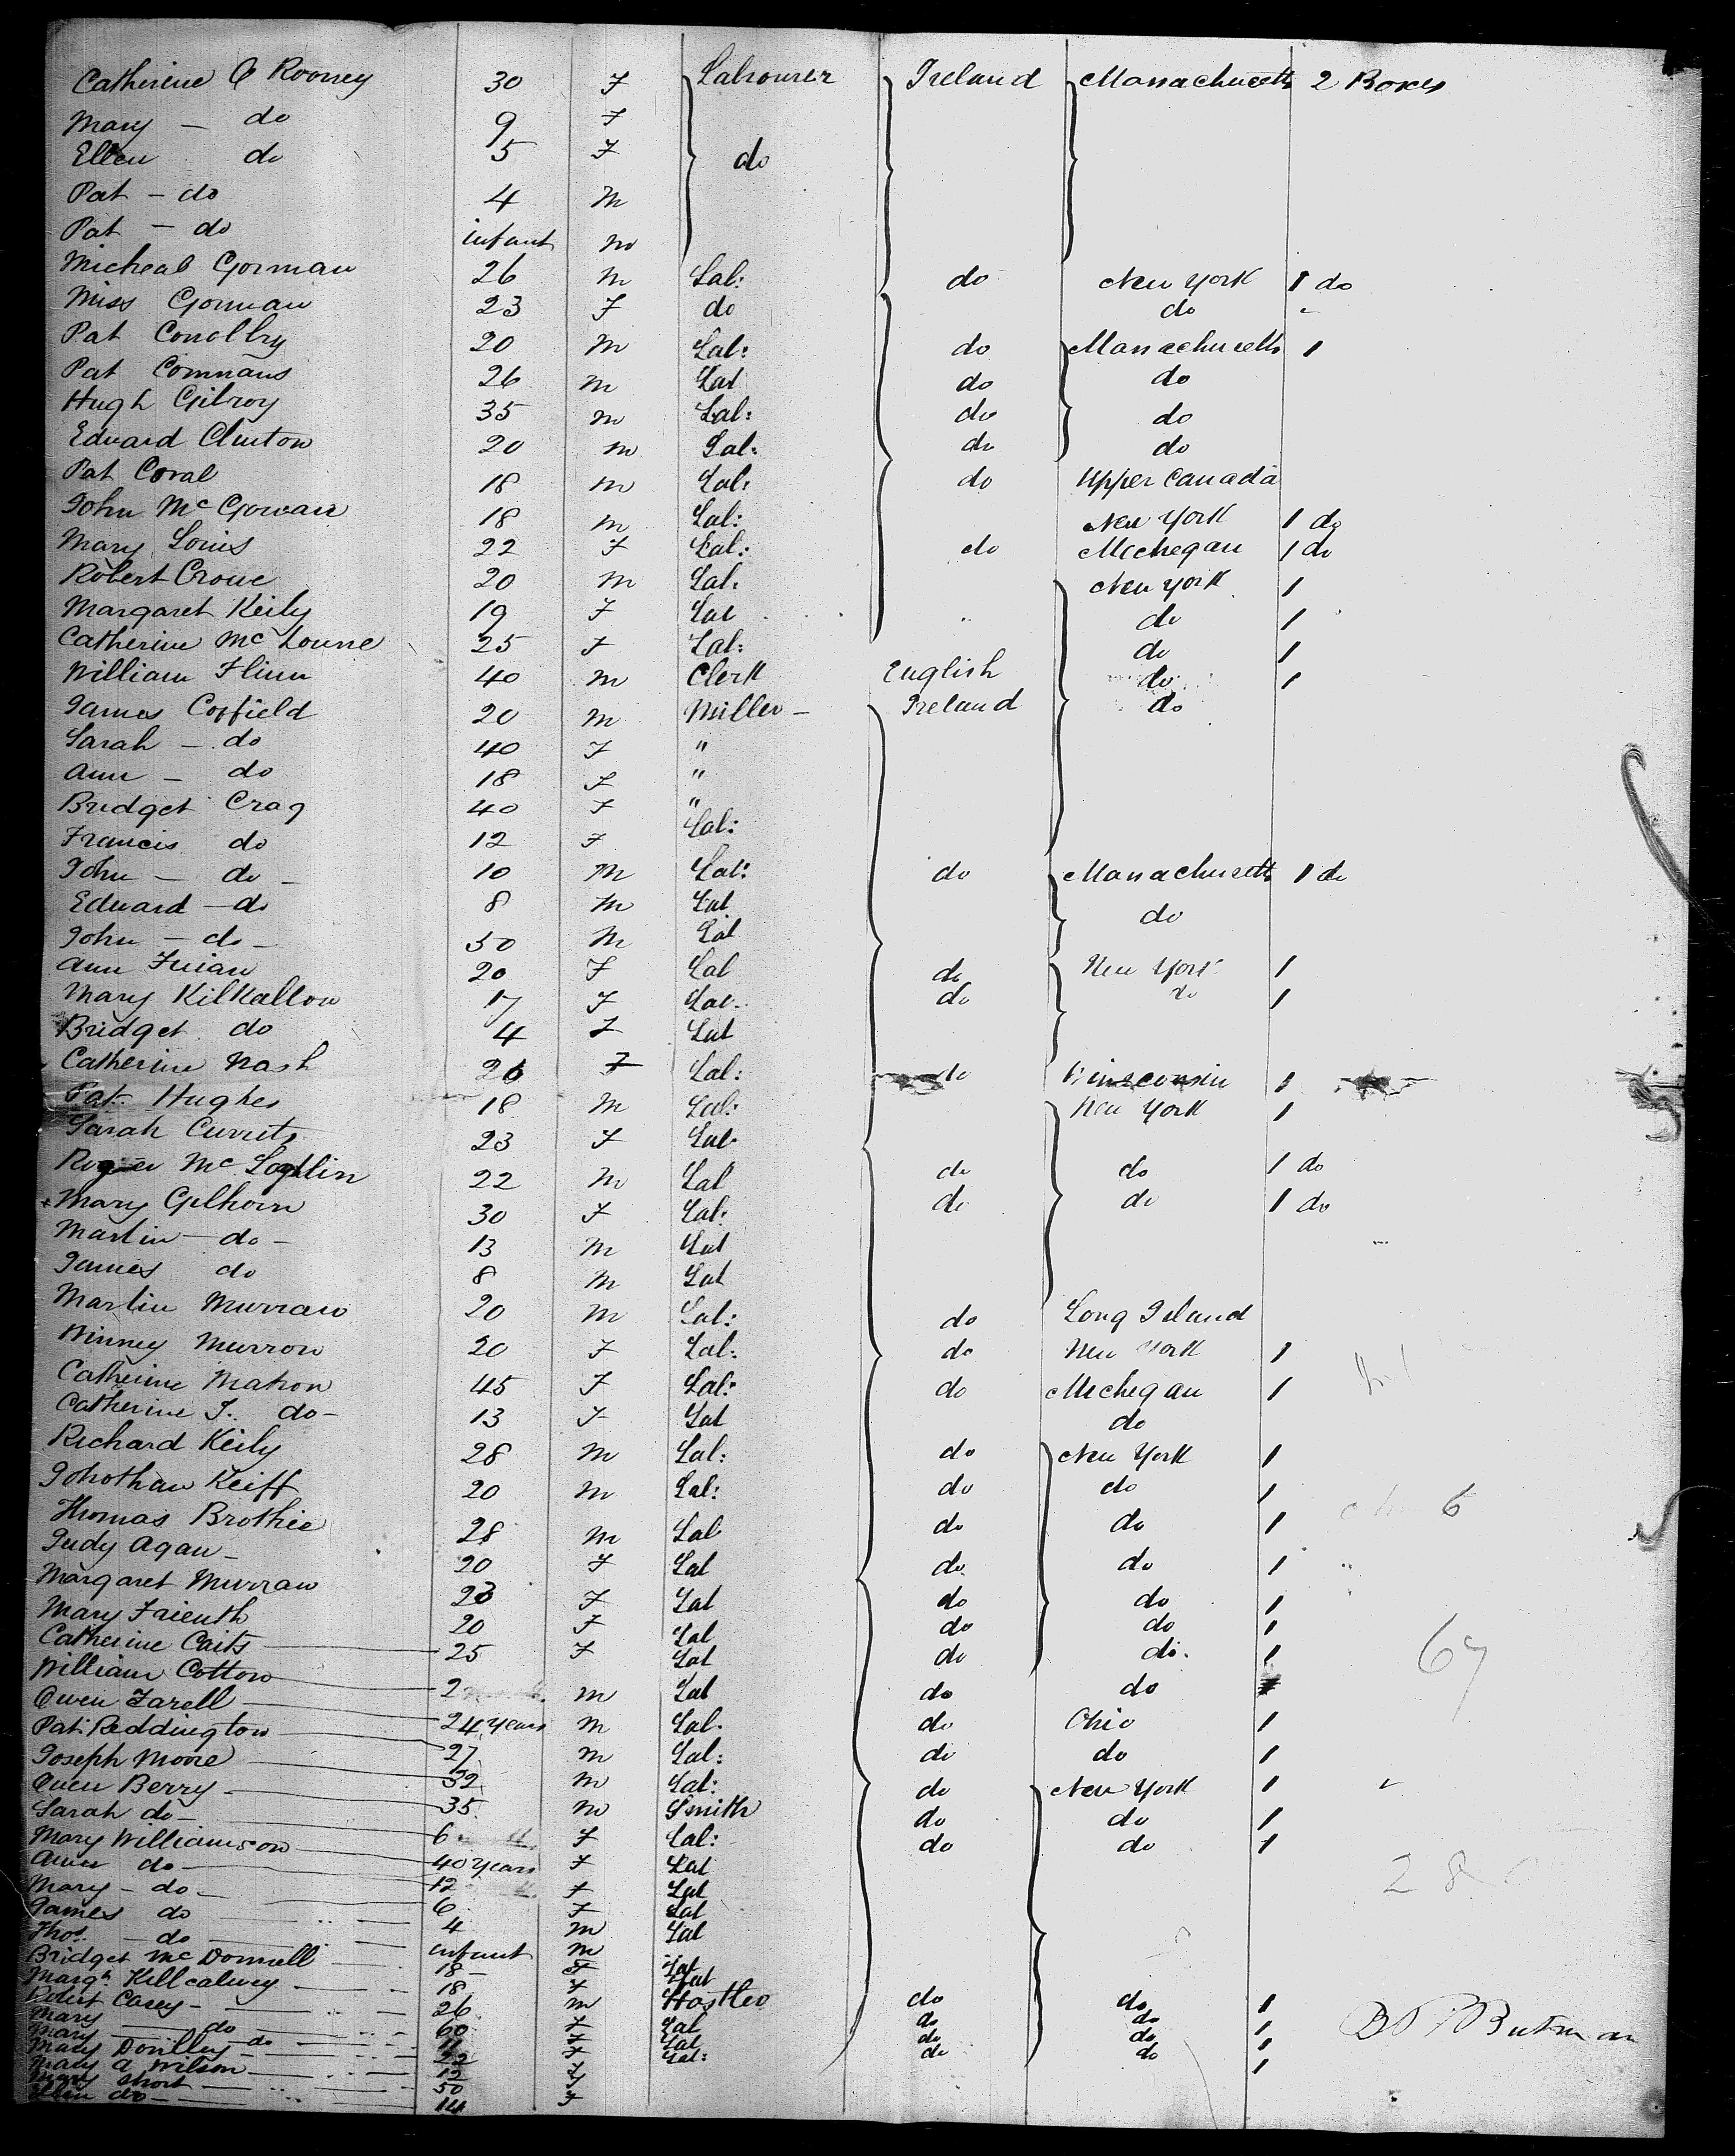 Catherine O Rooney 30 F Labourer Ireland Massachusetts 2 Boxes
Mary – do 9 F
Ellen do 5 F do
Pat – do 4 m
Pat – do infant m
Micheal Gorman 26 m Lab: do New York 1 do
Miss Gorman 23 F do do "
Pat Conollry 20 m Lab: do Massachusetts 1
Pat Commans 26 m Lab do do
Hugh Gilroy 35 m Lab: do do
Edward Clinton 20 m Lab: do do
Pat Coral 18 m Lab: do Upper Canada
John McGowan 18 m Lab: New York 1 do
Mary Louis 22 F Lab: do Mechegan 1 do
Robert Crowe 20 m Lab. New York 1
Margaret Keily 19 F Lab " do 1
Catherine Mc Lourre 25 F Lab: do 1
William Flinn 40 m Clerk English do 1
James Corfield 20 m Miller – Ireland do
Sarah – do 40 F "
Ann – do 18 F "
Bridget Crag 40 F "
Francis do 12 F Lab:
John – do – 10 m Lab: do Massachusetts 1 do
Edward – do 8 m Lab do
John – do – 50 m Lab
Ann 20 F Lab do New York 1
Mary Kilkallon 17 F Lab. do do 1
Bridget do 4 F Lab
Catherine Nash 26 F Lab: do Winsconsin 1
Pat Hughes 18 m Lab: New York 1
Sarah Currits 23 F Lab
Roger Mc Loghlin 22 m Lab do do 1 do
Mary Gilhorn 30 F Lab: do do 1 do
Martin – do – 13 m Lab
James do 8 m Lab
Martin Murraw 20 m Lab: do Long Island
Winney Murrow 20 F Lab: do New York 1
Catherine Mahon 45 F Lab: do Mechegan 1
Catherine J. do – 13 F Lab do
Richard Keily 28 m Lab: do New York 1
Johothan Keiff 20 m Lab: do do 1 6
Thomas Brothie 28 m Lab do do 1
Judy Agan – 20 F Lab do do 1
Margaret Murraw 23 F Lab do do 1
Mary 20 F Lab do do 1
Catherine Caits 25 F Lab do do. 1 67
William Cotton 2 m Lab do do
Owen Farell 24 years m Lab. do Ohio 1
Pat Reddington 27 m Lab: do do 1
Joseph Moore 32 m Lab: do New York 1
Owen Berry – 35 m Smith do do 1
Sarah do – 6 F Lab: do do 1
Mary Williamson 40 years F Lab
Ann do – 12 F Lab 28
Mary – do – 6 F Lab
James do 4 m Lab
Thos. – do infant m
Bridget Mc Donnell 18 – F Lab
Margt. Killcalwey 18 F Lab
Robert Casey – 26 m Hostler do do 1
Mary do 60 F Lab do do 1
Mary do 11 F Lab do do 1
Mary Donilley 22 F Lab: do do 1
Mary A Wilson 12 F
Mary Short 50 F
Ellen do – 14